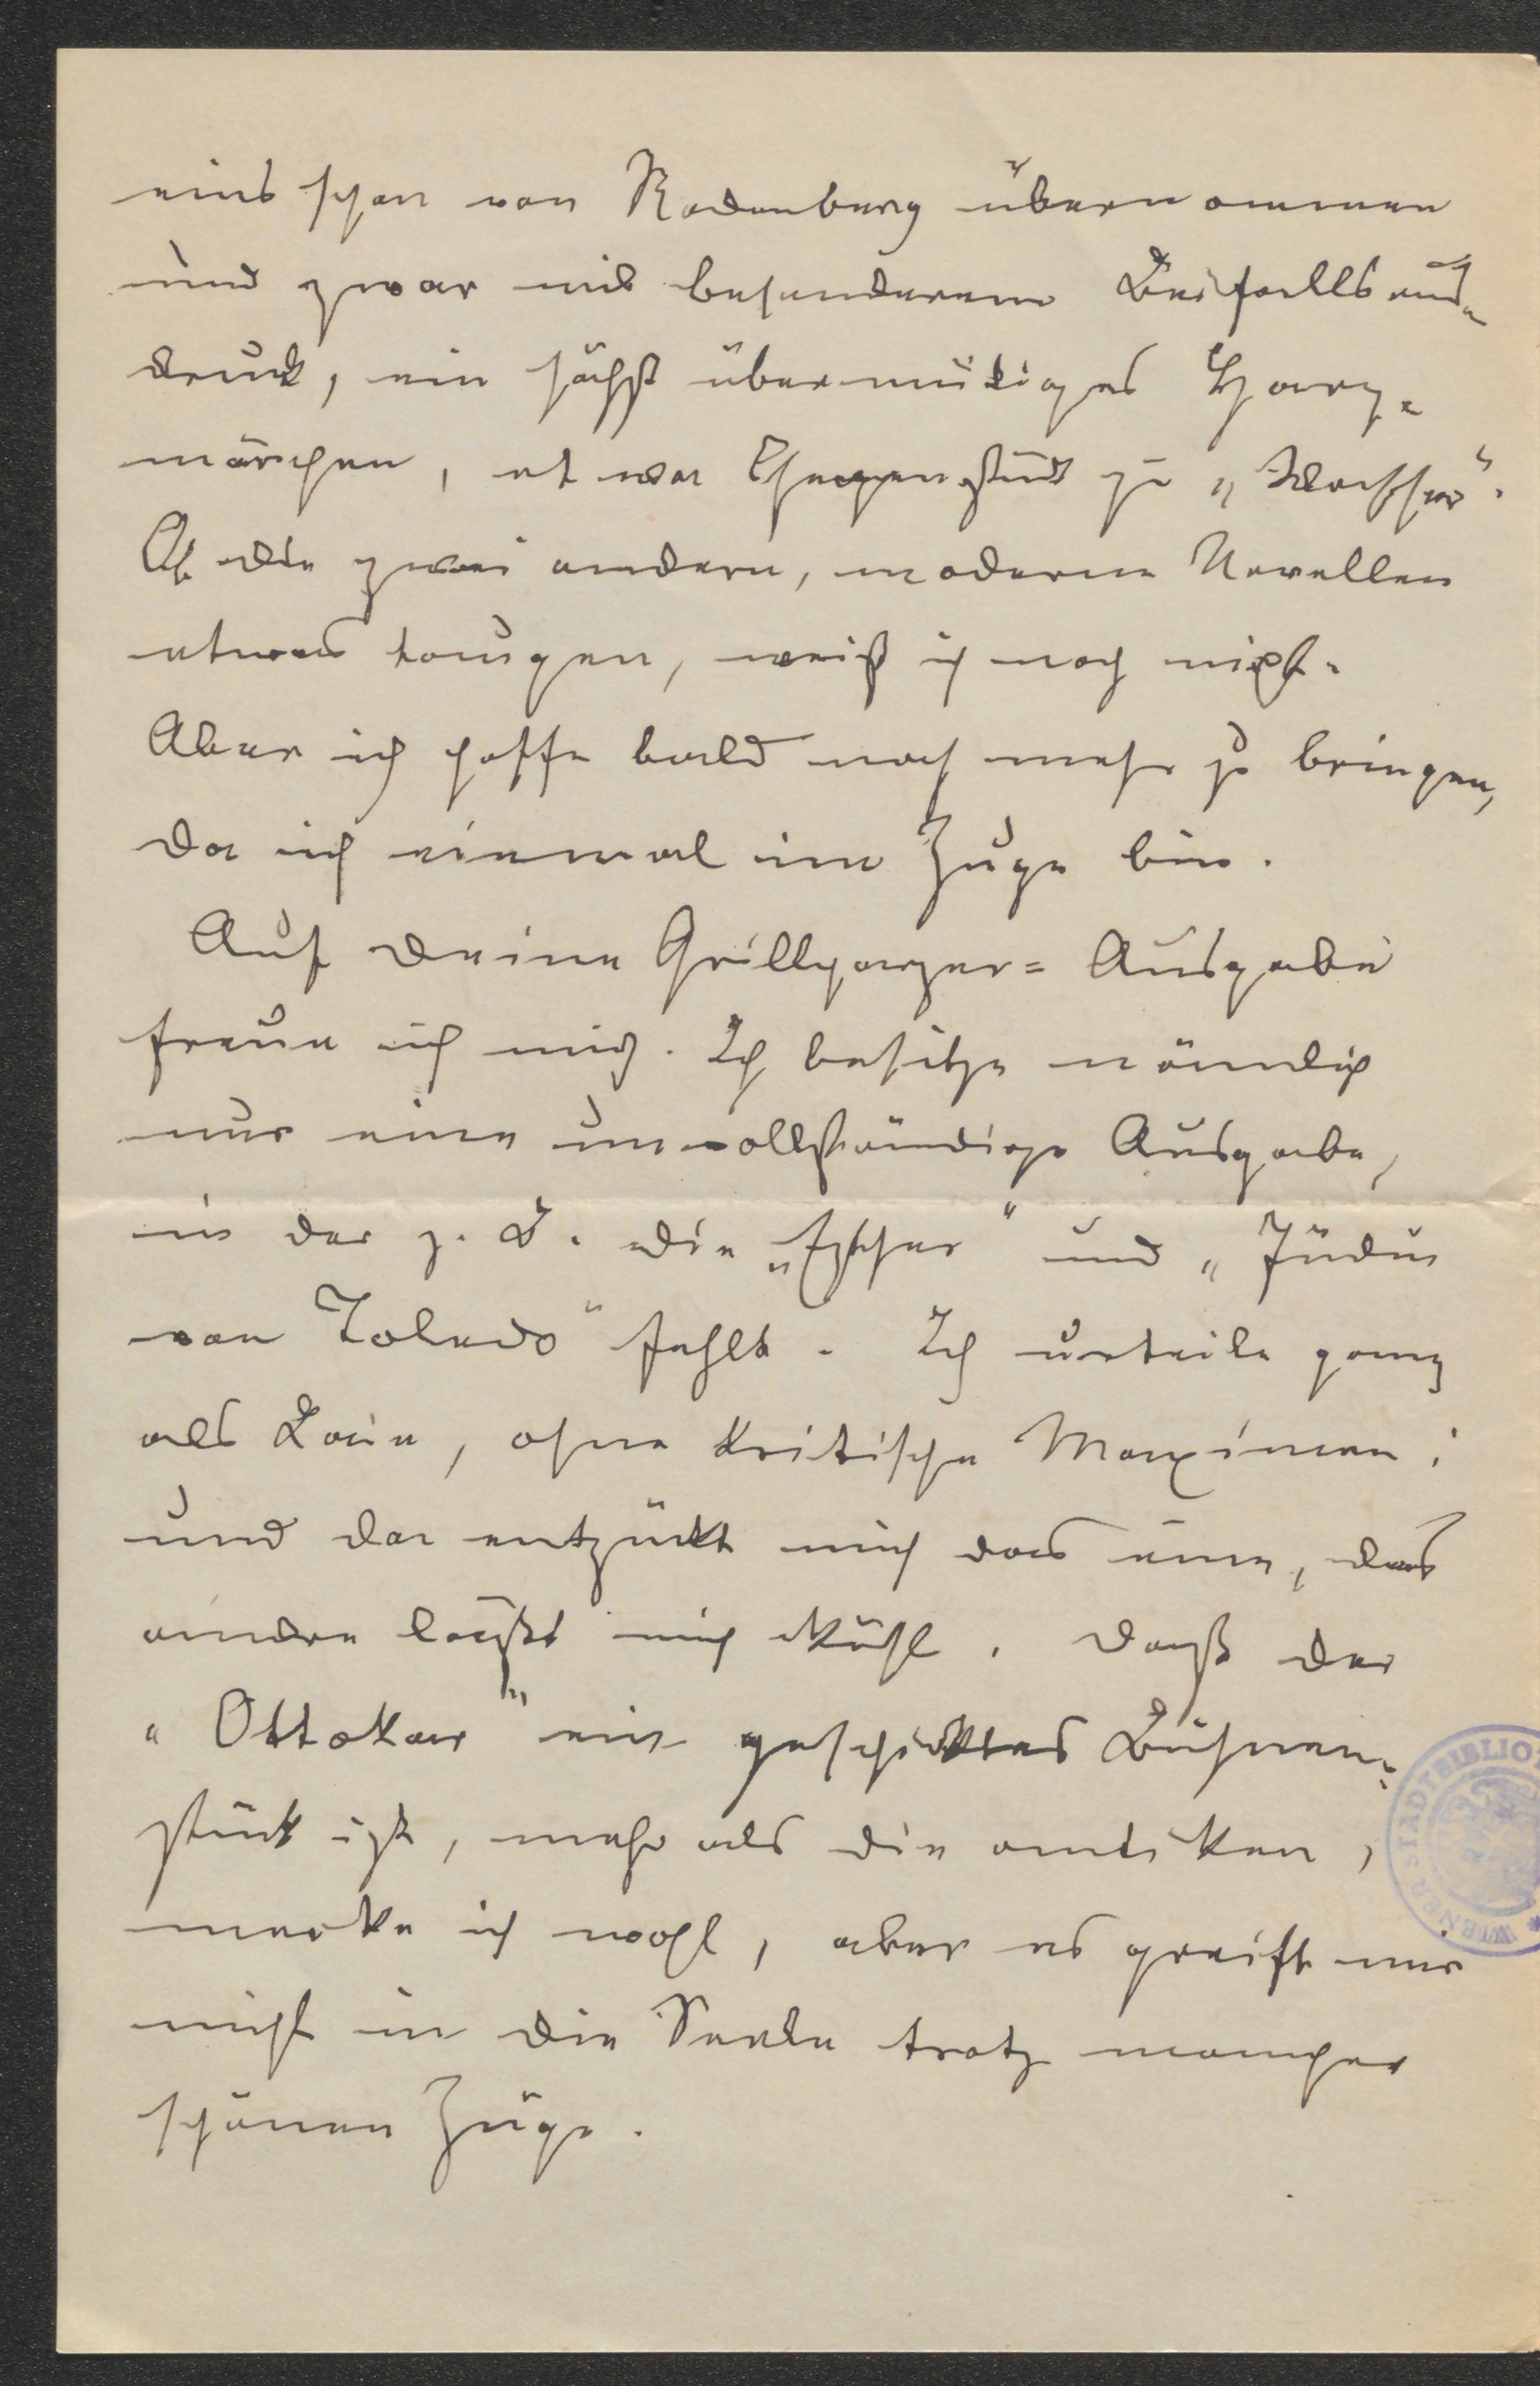 eins schon von Rodenberg übernommen
und zwar mit besonderem Beifallsaus-
druck, ein höchst übermütiges Harz-
märchen, etwa Gegenstück zu „Wasser“.
Ob die zwei andern, moderne Novellen
etwas taugen, weiß ich noch nicht.
Aber ich hoffe bald noch mehr zu bringen,
da ich einmal im Zuge bin.
Auf Deine Grillparzer-Ausgabe
freue ich mich. Ich besitze nämlich
nur eine unvollständige Ausgabe,
in der z. B. die „Esther“ und „Jüdin
von Toledo“ fehlt. Ich urteile ganz
als Laie, ohne kritische Maximen;
und da entzückt mich das eine, das
andre läßt mich kühl. Daß der
„Ottokar“ ein geschicktes Bühnen-
stück ist, mehr als die antiken,
merke ich wohl, aber es greift mir
nicht in die Seele trotz mancher
schönen Züge.
WIENER STADTBIBLIO